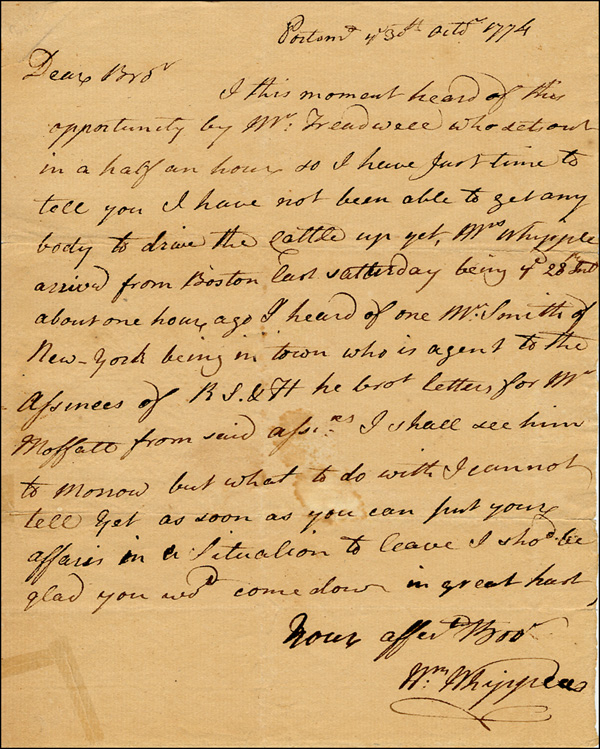 Portsmo ye 30th Octor 1774
Dear Bror
I this moment heard of this
opportunity by Mr. Treadwell who sets out
in a half an hour so I have Just time to
tell you I have not been able to get any
body to drive the Cattle up yet, Mrs Whipple
arrivd from Boston last satterday being ye 28th Inst
about one hour ago I heard of one Mr. Smith of
New-York being in town who is agent to the
Assinees of R S & H he brot letters for Mr
Moffatt from said assi.nes I shall see him
to morrow but what to do with I cannot
tell Yet as soon as you can put your
affairs in a Situation to leave I shod be
glad you wod come down in great hast,
Your affecte Bror
Wm Whipple